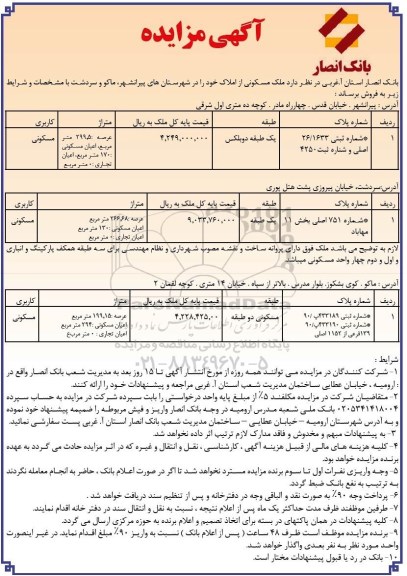 آگهی مزایده
بانک انصار
بانک انصار استان آ.غربی در نظر دارد ملک مسکونی از املاک خود را در شهرستان های پیرانشهر، ماکو و سردشت با مشخصات و شرایط
زیر به فروش برساند :
آدرس : پیرانشهر . خیابان قدس . چهارراه مادر . کوچه ده متری اول شرقی
ردیف شماره پلاک طبقه قیمت پایه کل ملک به ریال متراژ کاربری
۱ *شماره ثبتی ۲۶/۱۶۳۳ اصلی و شماره ثبت ۴۲۵۰ یک طبقه دوبلکس ۴,۲۴۹,۰۰۰,۰۰۰ عرصه: ۲۹۹,۵۰ متر مربع، اعیان مسکونی: ۱۷۰ متر مربع، اعیان تجاری: ۰ متر مربع مسکونی
آدرس: سردشت، خیابان پیروزی پشت هتل پوری
ردیف شماره پلاک طبقه قیمت پایه کل ملک به ریال متراژ کاربری
۱ *شماره ۷۵۱ اصلی بخش ۱۱ مهاباد یک طبقه ۹,۰۳۳,۷۶۰,۰۰۰ عرصه: ۲۶۶,۶۸ متر مربع اعیان مسکونی: ۱۳۰ متر مربع اعیان تجاری: ۰ متر مربع مسکونی
لازم به توضیح می باشد ملک فوق دارای پروانه ساخت و نقشه مصوب شهرداری و نظام مهندسی برای سه طبقه همکف پارکینگ و انباری
و اول و دوم چهار واحد مسکونی میباشد
آدرس : ماکو . کوی بشکوز. بلوار مدرس . بالاتر از سپاه . خیابان ۱۴ متری . کوچه لقمان ۲
ردیف شماره پلاک طبقه قیمت پایه کل ملک به ریال متراژ کاربری
۱ *شماره ثبتی ۳۳۳۱۸۹ب/۹۰ *شماره ثبتی ۳۳۳۱۹۰ب/۹۰ ۱۳۹فرعی از ۱۱۵۲ اصلی مسکونی دو طبقه ۴,۲۳۸,۴۲۵,۰۰ عرصه: ۱۹۹,۱۵ متر مربع اعیان مسکونی: ۲۹۴ متر مربع اعیان تجاری: ۰ متر مربع مسکونی
۰۲۱-۸۸۳۴۹۶۷۰-۵
شرایط :
۱-شرکت کنندگان در مزایده می توانند همه روزه از مورخ انتشار آگهی تا ۱۵ روز بعد به مدیریت شعب بانک انصار واقع در
: ارومیه . خیابان عطایی ساختمان مدیریت شعب استان آ. غربی مراجعه و پیشنهادات خود را ارائه کنند.
۲- متقاضیان شرکت در مزایده مکلفند ۵٪ از مبلغ پایه واحد درخواستی را بابت سپرده شرکت در مزایده به حساب سپرده
۰۲۰۵۳۴۱۴۱۸۰۰۴ بانک ملی شعبه مدرس ارومیه در وجه بانک انصار واریز و فیش مربوطه را ضمیمه پیشنهاد خود نموده
و به آدرس شهرستان ارومیه – خیابان عطایی – ساختمان مدیریت شعب بانک انصار استان آ. غربی پست سفارشی نمایند.
۳- به پیشنهادات مبهم و مخدوش و فاقد مدارک لازم ترتیب اثر داده نخواهد شد.
۴- کلیه هزینه های مالی از قبیل هزینه آگهی ، کارشناسی ، نقل و انتقال و غیره که در اثر مزایده حادث می گردد به عهده
برنده مزایده خواهد بود.
۵- وجه واریزی نفرات اول تا سوم برنده مزایده مسترد نخواهد شد تا اگر در صورت اعلام بانک ، حاضر به انجام معامله نگردند
به ترتیب به نفع بانک ضبط گردد.
۶- پرداخت وجه ۹۰٪ به صورت نقد و الباقی وجه در دفترخانه و پس از تنظیم سند دریافت خواهد شد .
۷- طرفین موظفند ظرف مدت حداکثر یک ماه پس از اعلام نتیجه ، نسبت به نقل و انتقال سند در دفتر خانه اقدام نمایند.
۸- کلیه پیشنهادات در همان پاکتهای در بسته برای اتخاذ تصمیم و اعلام برنده به حوزه مرکزی ارسال می گردد.
۹- برنده مزایده موظف است ظرف ۴۸ ساعت ( پس از اعلام بانک ) نسبت به واریز ۹۰٪ مبلغ اقدام نماید. در غیر اینصورت
واحد مورد نظر به نفر بعدی واگذار خواهد شد.
۱۰- بانک در رد یا قبول پیشنهادات مختار است.